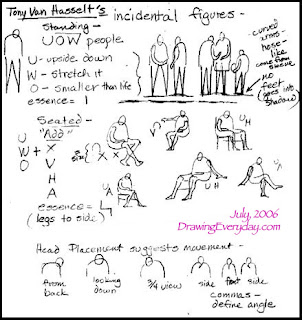 Tony Van Hasselt's incidental figures -
Standing -
UOW people
U - upside down
W - stretch it
O - smaller than life
essence = 1
curved
arms -
hose-
like
come from
sleeve
no
feet
(goes into
shadow)
Seated -
"Add"
U
W + X
O V
H
A
essence = 4
(legs to side)
UA
UH
UH
July, 2006
DrawingEveryday.com
Head Placement suggests movement -
from
back
looking
down
3/4 view
side front side
commas -
define angle